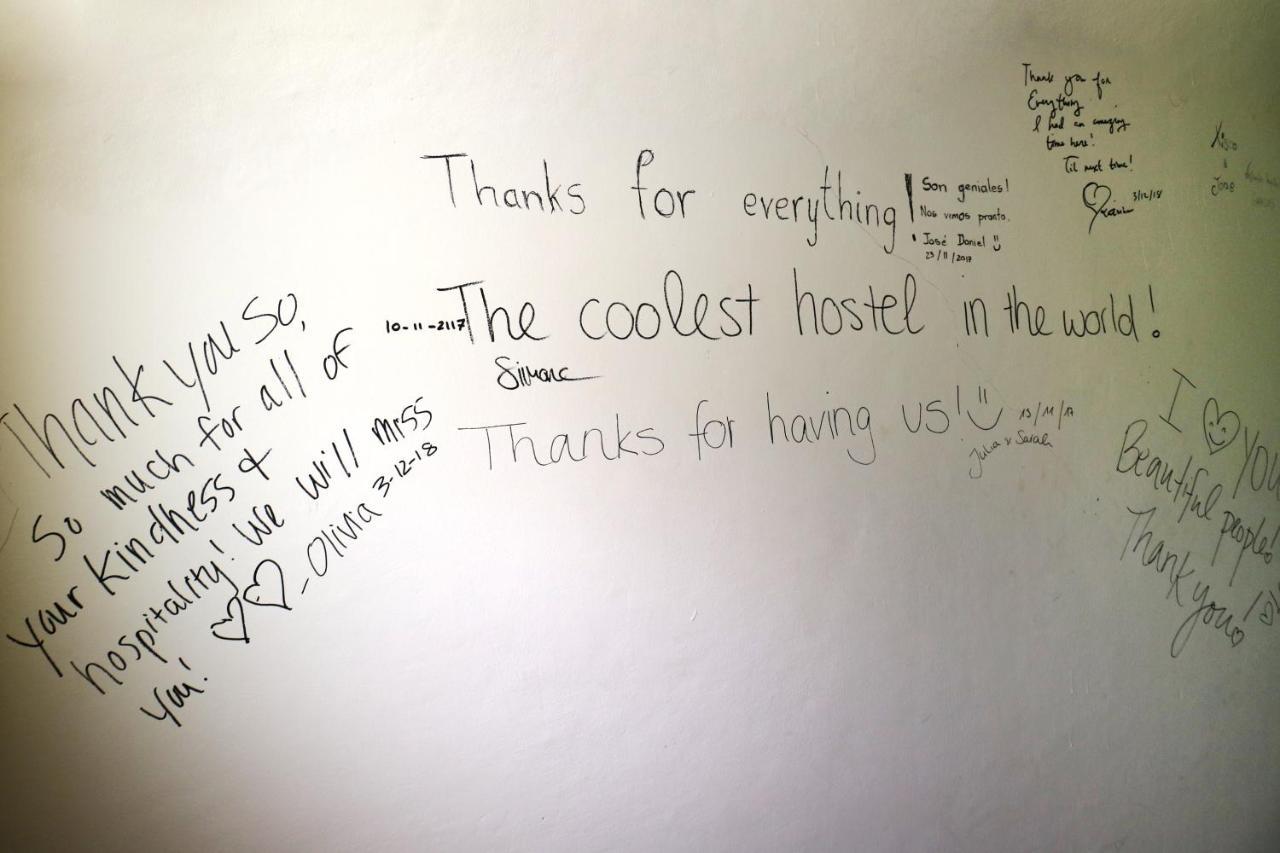 Thank you so,
So much for all of
your kindness &
hospitality! We will miss
you!
-Olivia 3-12-18
Thanks for everything!
10-11-2117
The coolest hostel in the world!
Simone
Thanks for having us!
13/11/17
Julia & Sarah
Son geniales!
Nos vimos pronto.
José Daniel
23/11/2017
Thank you for
Everything
I had an amazing
time here!
Til next time!
3/12/18
Jose
I YOU
Beautiful people!
Thank you!